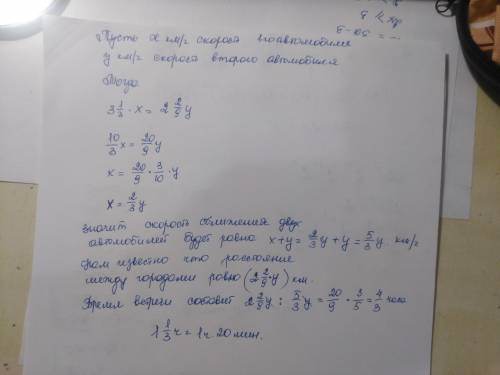 Пусть x км/ч скорость 1го автомобиля
y км/ч скорость второго автомобиля
Тогда
3 1/3 · x = 2 2/9 y
10/3 x = 20/9 y
x = 20/9 · 3/10 · y
x = 2/3 y
значит скорость сближения двух
автомобилей будет равна x+y = 2/3 y + y = 5/3 y км/ч
Нам известно что расстояние
между городами равно (2 2/9 · y) км.
Время встречи составит 2 2/9 y : 5/3 y = 20/9 · 3/5 = 4/3 часа
1 1/3 ч = 1ч 20 мин.